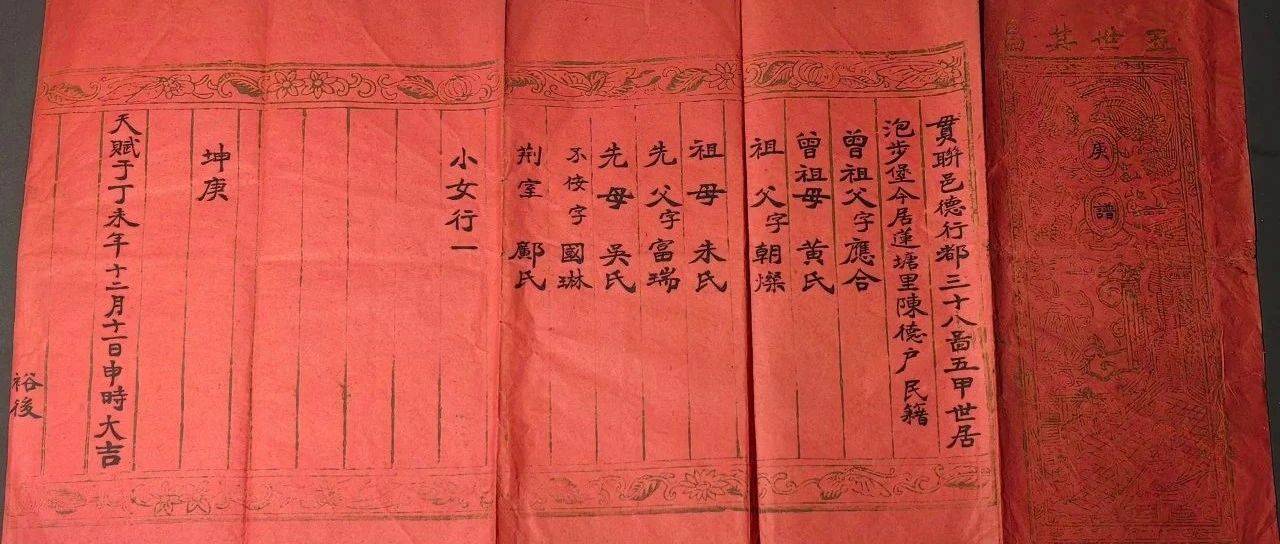 五世其昌
庚譜
貫聯邑德行都三十八啚五甲世居
泡步堡今居蓮塘里陳德户民籍
曾祖父字應合
曾祖母黃氏
祖父字朝燦
祖母朱氏
先父字富瑞
先母吳氏
不侫字國琳
荆室鄺氏
小女行一
坤庚
天賦于丁未年十二月十一日申時大吉
裕後